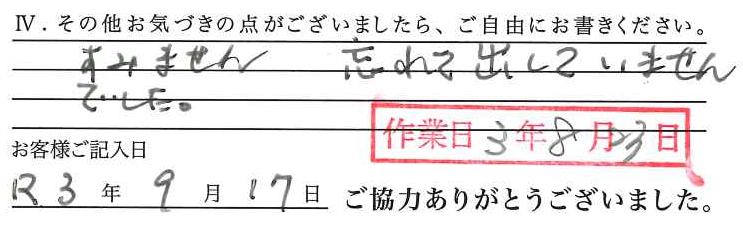 Ⅳ．その他お気づきの点がございましたら、ご自由にお書きください。
すみません 忘れて出していません
でした。
作業日 3年8月23日
お客様ご記入日
R3年9月17日 ご協力ありがとうございました。